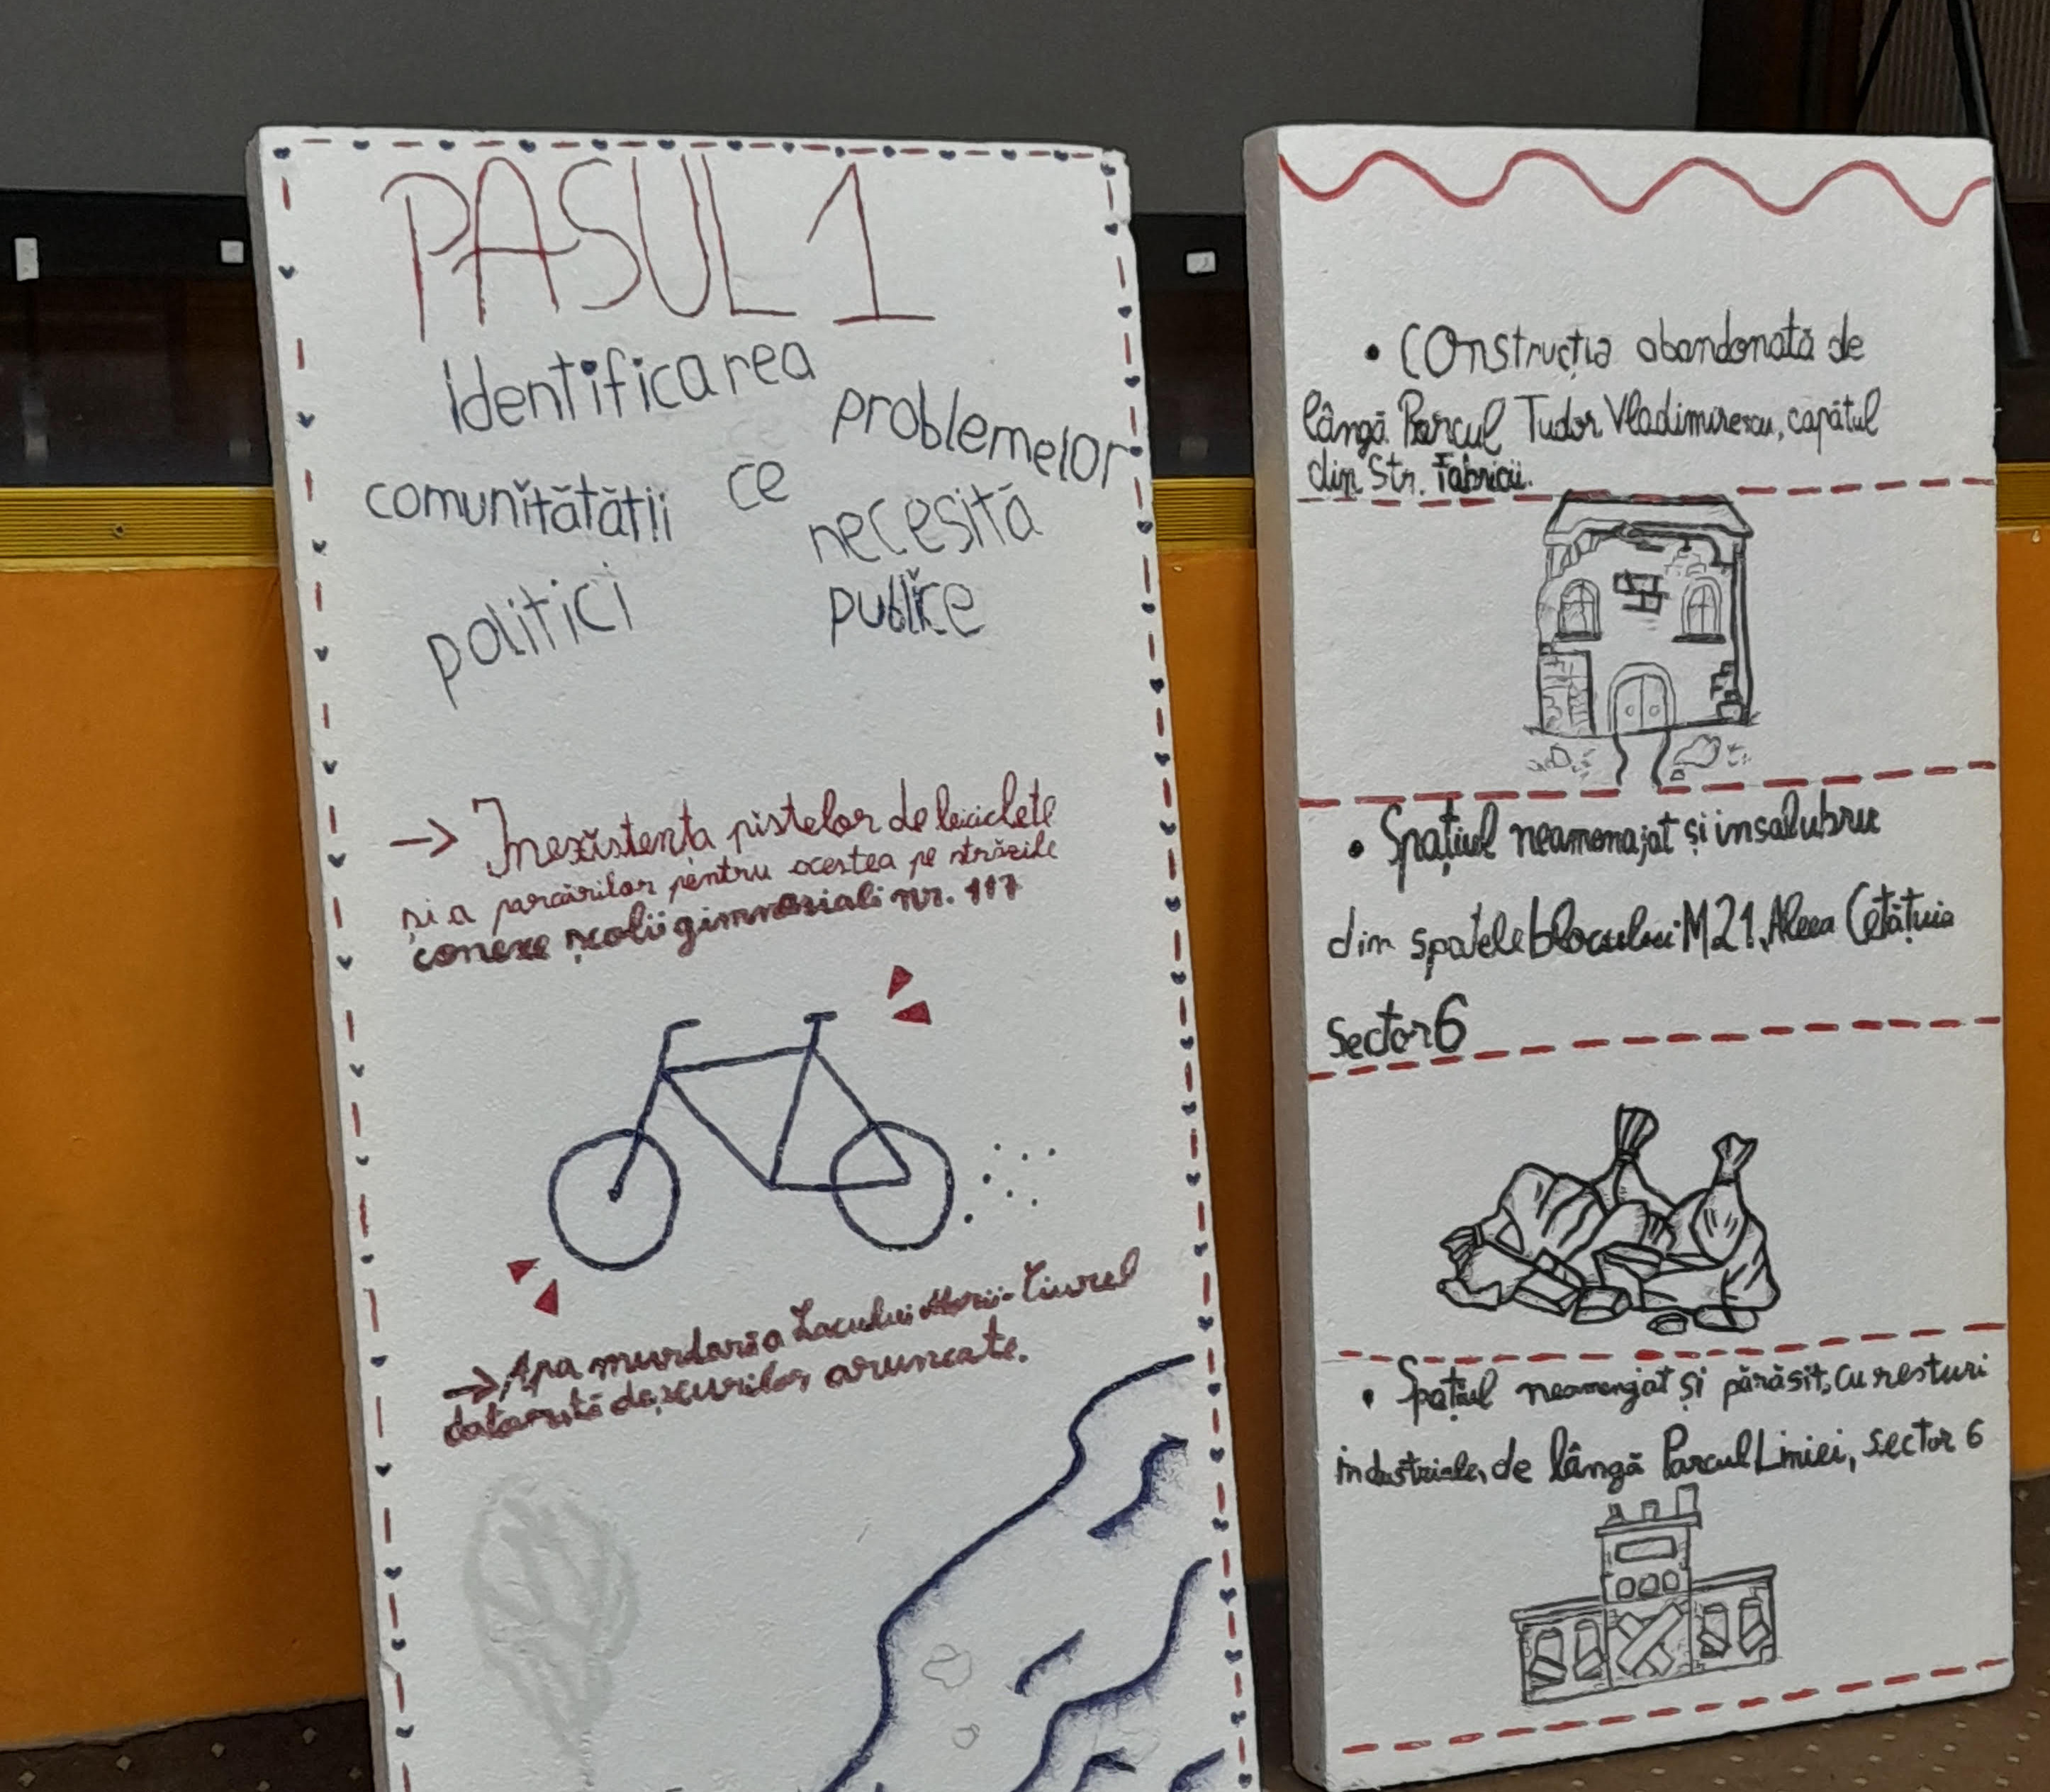 PASUL 1
identificarea problemelor
comunitătătii ce necesită
politici publice
→ Inexistența pistelor de biciclete
și a parcărilor pentru acestea pe străzile
conexe școlii gimnaziali nr. 117
→ Apa murdară a Lacului Morii-Ciurel
datorită deșeurilor aruncate.
• Construcția abandonată de
lângă Parcul Tudor Vladimirescu, capătul
din Str. Fabricii.
• Spațiul neamenajat și insalubru
din spatele blocului M21, Aleea Cetățuia
sector 6
• Spațiul neamenjat și părăsit, cu resturi
industriale, de lângă Parcul Liniei, sector 6